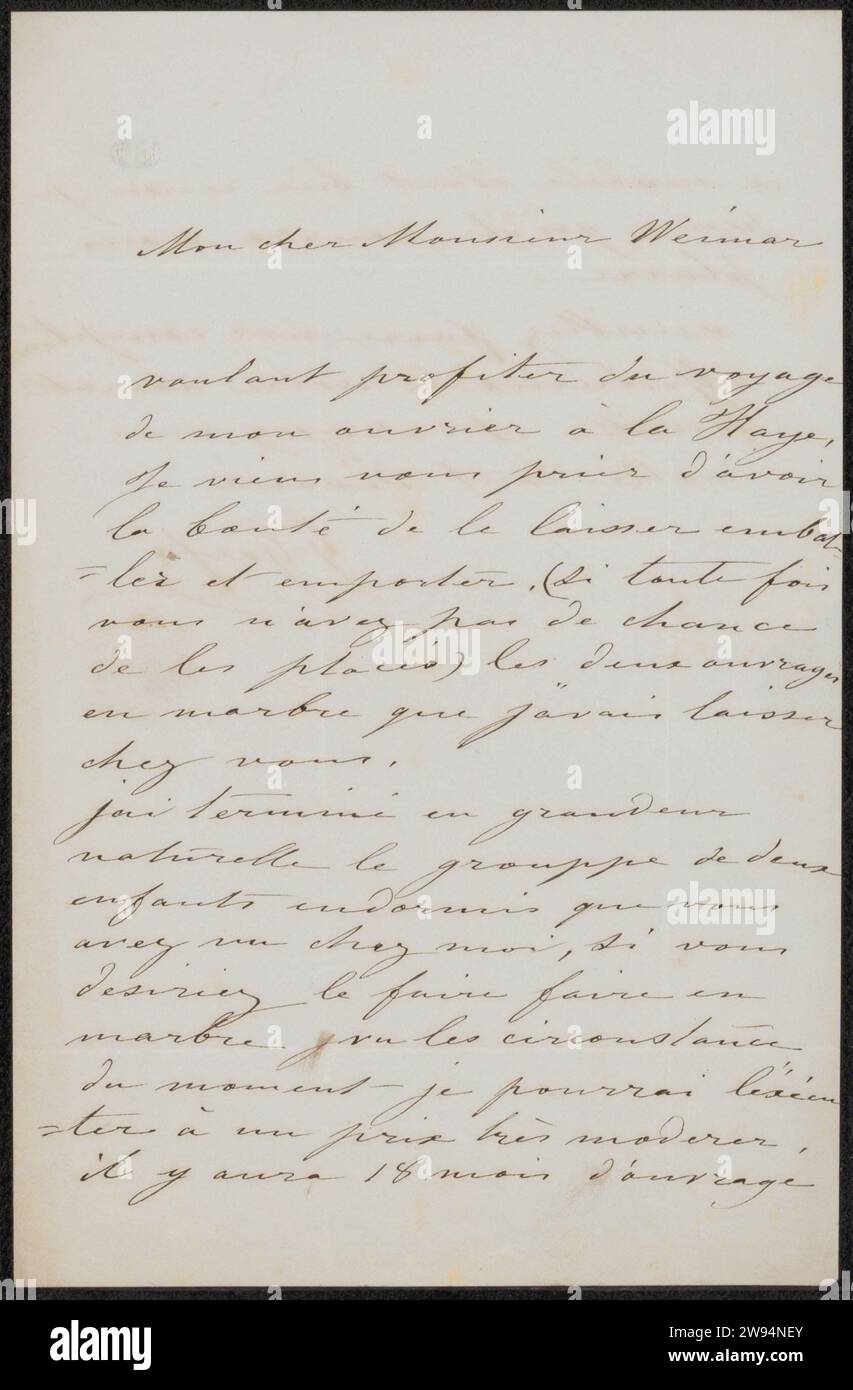 Mon cher Monsieur Weimar
voulant profiter du voyage
de mon ouvrier à la Haye,
Je viens vous prier d'avoir
la bonté de le laisser embal-
=lér et emporter, (si toute fois
vous n'avez pas de chance
de les placér) les deux ouvrages
en marbre que j'avais laisser
chez vous.
j'ai terminé en grandeur
naturelle le grouppe de deux
enfants endormis que vous
avez vu chez moi, si vous
desiriez le faire faire en
marbre, vu les circonstance
du moment je pourrai l'éxécu
=ter à un prix très moderer,
il y aura 18 mois d'ouvrage
alamy
Image ID: 2W94NEY
www.alamy.com